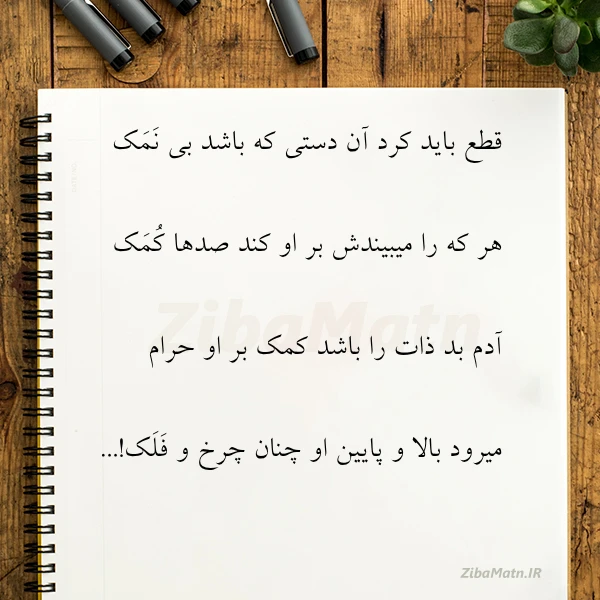 قطع باید کرد آن دستی که باشد بی نَمَک
هر که را میبیندش بر او کند صدها کُمَک
ZibaMatn
آدم بد ذات را باشد کمک بر او حرام
میرود بالا و پایین او چنان چرخ و فَلَک!...
ZibaMatn.IR